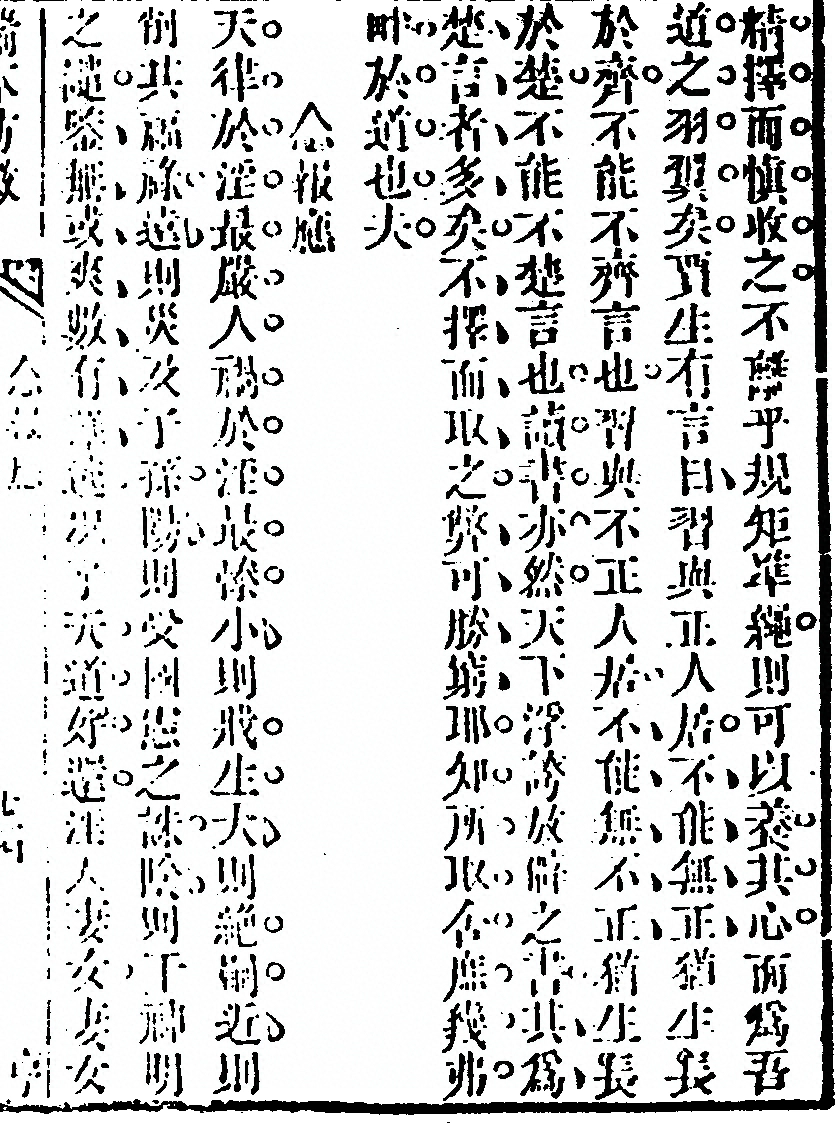 精擇而慎收之不離乎規矩準繩則可以養其心而為吾
道之羽翼矣賈生有言曰習與正人居不能無正猶生長
於齊不能不齊言也習與不正人居不能無不正猶生長
於楚不能不楚言也讀書亦然天下浮誇放僻之書其為
楚言者多矣不擇而取之弊可勝窮耶知所取舍庶幾弗
畔於道也夫
念報應
天律於淫最嚴人禍於淫最慘小則戕生大則絕嗣近則
削其福祿遠則災及子孫陽則受國憲之誅陰則干神明
之譴鑒無或爽數有難逃況乎天道好還淫人妻女妻女